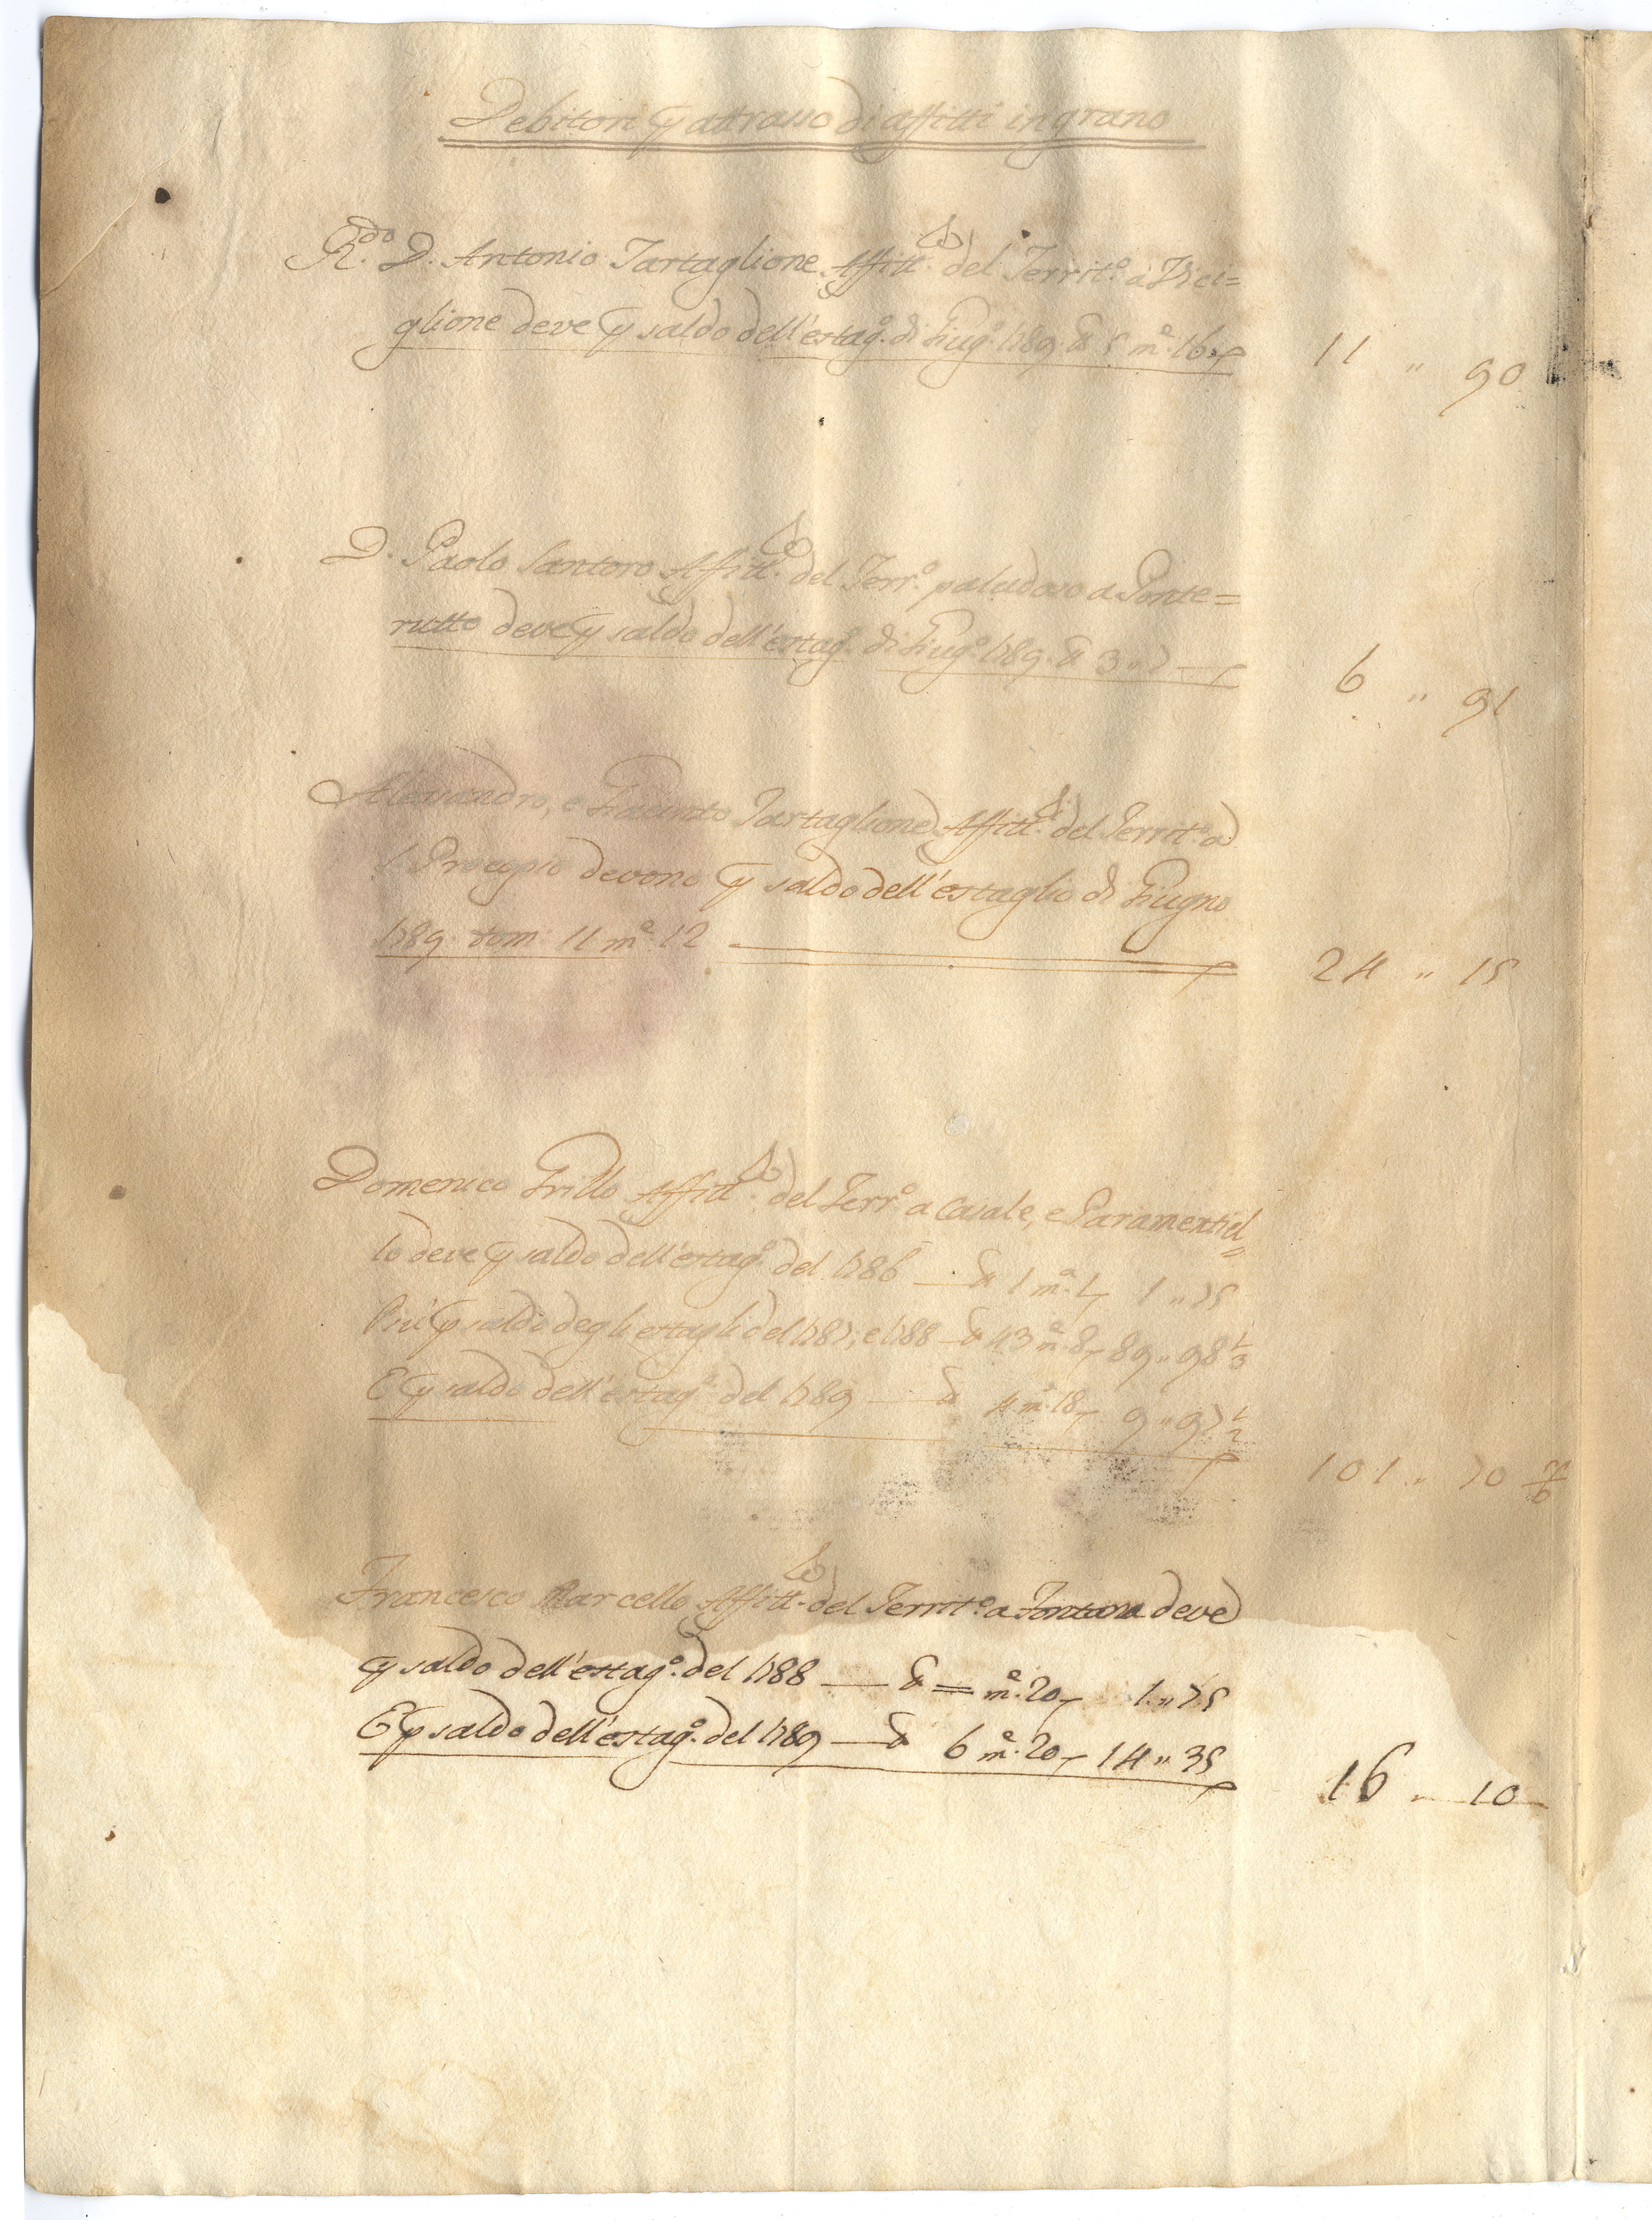 Debitori p attrasso di affitti in grano
R.do D. Antonio Tartaglione Affitt.e del Territ.o a Trei=
glione deve p saldo dell'estag.o di Giug.o 1789. t.a 5 m.e 16 11 " 90
D. Paolo Santoro Affitt.e del Terr.o paludoso a Ponte=
rutto deve p saldo dell'estag.o di Giug.o 1789. t.a 3 " 7 6 " 91
Alessandro, e Giacinto Tartaglione Affitt.i del Territ.o a
S. Procopio devono p saldo dell'estaglio di Giugno
1789. tom: 11 m.e 12 24 " 15
Domenico Grillo Affitt.e del Terr.o a Casale, e Paramentiel=
lo deve p saldo dell'estag.o del 1786 — t.a 1 m.e 1 1 " 75
Più p saldo degli estagli del 1787, e 1788 — t.a 43 m.e 8 89 " 98 1/3
E p saldo dell'estag.o del 1789 — t.a 4 m.e 18 9 " 97 1/2
101 " 70 5/6
Francesco Marcello Affitt.e del Territ.o a Fontana deve
p saldo dell'estag.o del 1788 — t.a = m.e 20 1 " 75
E p saldo dell'estag.o del 1789 — t.a 6 m.e 20 14 " 35
16 " 10